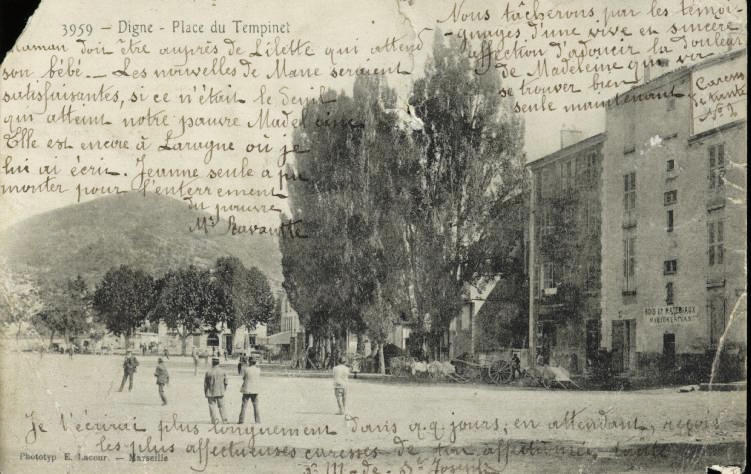 3959 - Digne - Place du Tempinet
Maman doit être auprès de Lilette qui attend
son bébé. - Les nouvelles de Mane seraient
satisfaisantes, si ce n'était le deuil
qui atteint notre pauvre Madeleine
Elle est encore à Laragne où je
lui ai écrit. Jeanne seule a pu
monter pour l'enterrement
du pauvre
Mr
Nous tâcherons par les témoi-
gnages d'une vive et sincère
affection d'adoucir la douleur
de Madeleine qui va
se trouver bien
seule maintenant
BOIS ET MATERIAUX
Je t'écrirai plus longuement dans q.q. jours; en attendant, reçois
les plus affectueuses caresses de ton affectionnée tante
Sr M. de St Joseph
Phototyp E. Lacour. - Marseille